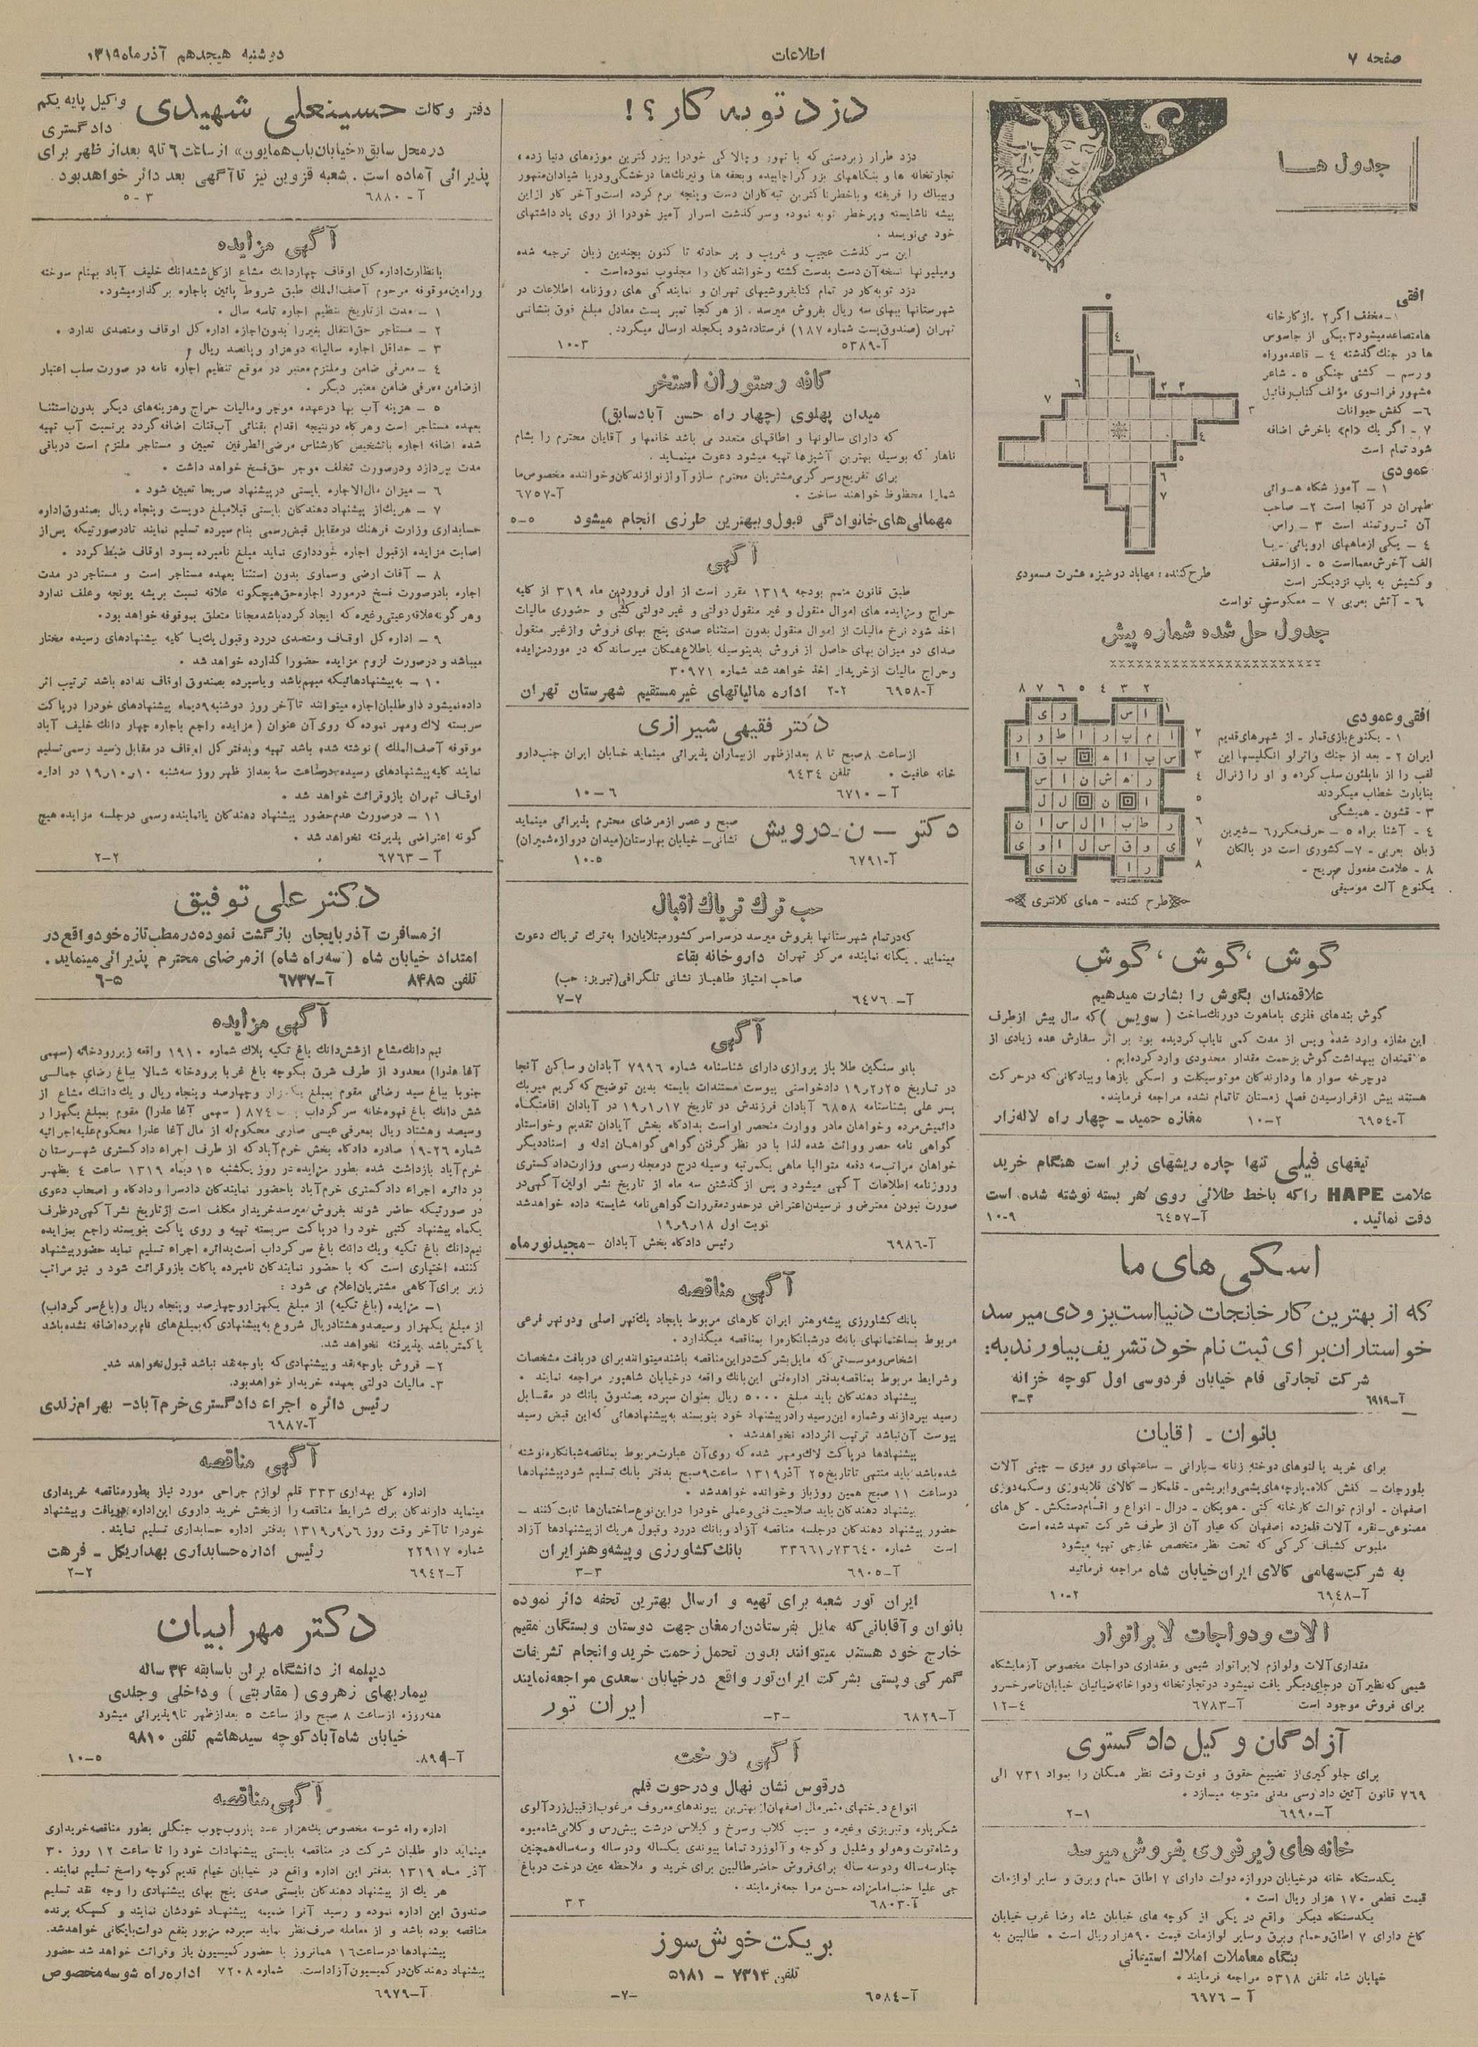 صفحه ۷
اطلاعات
دوشنبه هیجدهم آذرماه ۱۳۱۹
جدول ها
افقی
۱- مخفف اگر ۲ - از کارخانه
ها متصاعد میشود ۳- یکی از جاسوس
ها در جنك گذشته ٤ - قاعده و راه
و رسم - کشتی جنگی ۵ - شاعر
مشهور فرانسوی مؤلف کتاب رفائیل
٦- کفش حیوانات
۷ - اگر یك «دام» باخرش اضافه
شود تمام است
عمودی
۱ - آموزشگاه هوائی
طهران در آنجا است ۲- صاحب
آن ثروتمند است ۳ - راس
٤ - یکی از ماههای اروپائی - با
الف آخرش معما است ۵ - از اسقف
و کشیش به پاپ نزدیکتر است
٦ - آتش بعربی ۷ - معکوسش تواست
طرح کننده : مهاباد دوشیزه عشرت مسعودی
جدول حل شده شماره پیش
افقی و عمودی
۱ - یکنوع بازی قمار - از شهرهای قدیم
ایران ۲ - بعد از جنك واترلو انگلیسها این
لقب را از ناپلئون سلب کرده و او را ژنرال
بناپارت خطاب میکردند
۳ - قشون - همیشگی
٤ - آشنا براه ۵ - حرف مکرر ٦ - شیرین
زبان بعربی - ۷ - کشوری است در بالکان
۸ - علامت مفعول صریح -
یکنوع آلت موسیقی
طرح کننده - همای کلانتری
گوش ، گوش ، گوش
علاقمندان بگوش را بشارت میدهیم
گوش بندهای فلزی با ماهوت دورنك ساخت (سویس) که سال پیش از طرف
این مغازه وارد شده و پس از مدت کمی نایاب گردیده بود بر اثر سفارش عده زیادی از
علاقمندان ببهداشت گوش بزحمت مقدار محدودی وارد کرده ایم .
دوچرخه سوار ها و دارندگان موتوسیکلت و اسکی بازها و پیادگانی که در حرکت
هستند پیش از فرارسیدن فصل زمستان تا تمام نشده مراجعه فرمایند .
آ-٦۹۵٤ ۱۰-۲ مغازه حمید - چهار راه لاله زار
تیغهای فیلی تنها چاره ریشهای زبر است هنگام خرید
علامت HAPE را که با خط طلائی روی هر بسته نوشته شده است
دقت نمائید . آ-٦٤۵۷ ۱۰-۹
اسکی های ما
که از بهترین کارخانجات دنیا است بزودی میرسد
خواستاران برای ثبت نام خود تشریف بیاورند به :
شرکت تجارتی فام خیابان فردوسی اول کوچه خزانه
آ-٦۹۱۹ ۳-۳
بانوان - اقایان
برای خرید پالتوهای دوخته زنانه - بارانی - ساعتهای رو میزی - چینی آلات
بلورجات - کفش کلاه - پارچه های پشمی و ابریشمی - قلمکار - کالای قلابدوزی و سکمه دوزی
اصفهان - لوازم توالت کارخانه کتی - هوبیکان - درال - انواع و اقسام دستکش - گل های
مصنوعی - نقره آلات قلمزده اصفهان که عیار آن از طرف شرکت تعهد شده است
ملبوس کشباف کرکی که تحت نظر متخصص خارجی تهیه میشود
به شرکت سهامی کالای ایران خیابان شاه مراجعه فرمائید
آ-٦۹٤۸ ۱۰-۲
الات و دواجات لابراتوار
مقداری آلات و لوازم لابراتوار شیمی و مقداری دواجات مخصوص آزمایشگاه
شیمی که نظیر آن در جای دیگر یافت نمیشود در تجارتخانه و دواخانه ضیائیان خیابان ناصر خسرو
برای فروش موجود است آ-٦۷۸۳ ۱۲-٤
آزادگان وکیل دادگستری
برای جلوگیری از تضییع حقوق و فوت وقت نظر همگان را بمواد ۷۳۱ الی
۷٦۹ قانون آئین دادرسی مدنی متوجه میسازد .
آ-٦۹۹۰ ۲-۱
خانه های زیر فوری بفروش میرسد
یکدستگاه خانه در خیابان دروازه دولت دارای ۷ اطاق حمام و برق و سایر لوازمات
قیمت قطعی ۱۷۰ هزار ریال است .
یکدستگاه دیگر واقع در یکی از کوچه های خیابان شاه رضا غرب خیابان
کاخ دارای ۷ اطاق و حمام و برق و سایر لوازمات قیمت ۹۰ هزار ریال است . طالبین به
بنگاه معاملات املاك استپانی
خیابان شاه تلفن ۵۳۱۸ مراجعه فرمایند .
آ - ٦۹۷٦
دزد توبه کار ؟ !
دزد طرار زبردستی که با تهور و چالاکی خود را ببزرگترین موزه های دنیا زده ،
تجارتخانه ها و بنگاههای بزرگ را چاپیده و بحقه ها و نیرنك ها در خشکی و دریا شیادان متهور
و بیباك را فریفته و با خطرناکترین تبه کاران دست و پنجه نرم کرده است و آخر کار از این
پیشه ناشایسته و پر خطر توبه نموده و سرگذشت اسرار آمیز خود را از روی یادداشتهای
خود می نویسد .
این سرگذشت عجیب و غریب و پر حادثه تا کنون بچندین زبان ترجمه شده
و میلیونها نسخه آن دست بدست گشته و خوانندگان را مجذوب نموده است .
دزد توبه کار در تمام کتابفروشیهای تهران و نمایندگی های روزنامه اطلاعات در
شهرستانها ببهای سه ریال بفروش میرسد . از هر کجا تمبر پست معادل مبلغ فوق بنشانی
تهران (صندوق پست شماره ۱۸۷) فرستاده شود یکجلد ارسال میگردد .
آ-۵۳۸۹ ۱۰-۳
کافه رستوران استخر
میدان پهلوی (چهار راه حسن آباد سابق)
که دارای سالونها و اطاقهای متعدد می باشد خانمها و آقایان محترم را بشام
ناهار که بوسیله بهترین آشپزها تهیه میشود دعوت مینماید .
برای تفریح و سرگرمی مشتریان محترم ساز و آواز نوازندگان و خواننده مخصوص ما
شما را محظوظ خواهند ساخت . آ-٦۷۵۷
مهمانی های خانوادگی قبول و ببهترین طرزی انجام میشود ۵-۵
آگهی
طبق قانون متمم بودجه ۱۳۱۹ مقرر است از اول فروردین ماه ۳۱۹ از کلیه
حراج و مزایده های اموال منقول و غیر منقول دولتی و غیر دولتی کتبی و حضوری مالیات
اخذ شود نرخ مالیات از اموال منقول بدون استثناء صدی پنج بهای فروش و از غیر منقول
صدای دو میزان بهای حاصل از فروش بدینوسیله باطلاع همگان میرساند که در مورد مزایده
و حراج مالیات از خریدار اخذ خواهد شد شماره ۳۰۹۷۱
آ-٦۹۵۸ ۲-۲ اداره مالیاتهای غیر مستقیم شهرستان تهران
دکتر فقیهی شیرازی
از ساعت ۸ صبح تا ۸ بعد از ظهر از بیماران پذیرائی مینماید خیابان ایران جنب دارو
خانه عافیت . تلفن ۹٤۳٤
آ - ٦۷۱۰ ۱۰-٦
دکتر - ن - درویش
صبح و عصر از مرضای محترم پذیرائی مینماید
نشانی - خیابان بهارستان (میدان دروازه شمیران)
آ-٦۷۹۱ ۱۰-۵
حب ترك تریاك اقبال
که در تمام شهرستانها بفروش میرسد در سراسر کشور مبتلایان را به ترك تریاك دعوت
مینماید . یگانه نماینده مرکز تهران داروخانه بقاء
صاحب امتیاز طاهباز نشانی تلگرافی (تبریز : حب)
آ - ٦٤۷٦ ۷-۷
آگهی
بانو سنگین طلا باز پروازی دارای شناسنامه شماره ۷۹۹٦ آبادان و ساکن آنجا
در تاریخ ۱۹٫۲٫۲۵ دادخواستی بپیوست مستندات بایسته بدین توضیح که کریم میریك
پسر علی بشناسنامه ٦۸۵۸ آبادان فرزندش در تاریخ ۱۹٫۱٫۱۷ در آبادان اقامتگاه
دائمیش مرده و خواهان مادر و وارث منحصر اوست بدادگاه بخش آبادان تقدیم و خواستار
گواهی نامه حصر وراثت شده لذا با در نظر گرفتن گواهی گواهان ادله و اسناد دیگر
خواهان مراتب سه دفعه متوالیا ماهی یکمرتبه وسیله درج در مجله رسمی وزارت دادگستری
و روزنامه اطلاعات آگهی میشود و پس از گذشتن سه ماه از تاریخ نشر اولین آگهی در
صورت نبودن معترض و نرسیدن اعتراض در حدود مقررات گواهی نامه شایسته داده خواهد شد
نوبت اول ۱۹٫۹٫۱۸
آ-٦۹۸٦ رئیس دادگاه بخش آبادان - مجید نورماه
آگهی مناقصه
بانك کشاورزی و پیشه و هنر ایران کارهای مربوط بایجاد یك نهر اصلی و دو نهر فرعی
مربوط بساختمانهای بانك در شبانکاره را بمناقصه میگذارد .
اشخاص و موسسه ئی که مایل بشرکت در این مناقصه باشند میتوانند برای دریافت مشخصات
و شرایط مربوط بمناقصه بدفتر اداره فنی این بانك واقعه در خیابان شاهپور مراجعه نمایند .
پیشنهاد دهندگان باید مبلغ ۵۰۰۰ ریال بعنوان سپرده بصندوق بانك در مقابل
رسید بپردازند و شماره این رسید را در پیشنهاد خود بنویسند به پیشنهادهائی که این قبض رسید
پیوست آن نباشد ترتیب اثر داده نخواهد شد .
پیشنهادها در پاکت لاك و مهر شده که روی آن عبارت مربوط بمناقصه شبانکاره نوشته
شده باشد باید منتهی تا تاریخ ۲۵ آذر ۱۳۱۹ ساعت ۹ صبح بدفتر بانك تسلیم شود پیشنهادها
دو ساعت ۱۱ صبح همین روز باز و خوانده خواهد شد .
پیشنهاد دهندگان باید صلاحیت فنی و عملی خود را در این نوع ساختمان ها ثابت کنند -
حضور پیشنهاد دهندگان در جلسه مناقصه آزاد و بانك در رد و قبول هر یك از پیشنهادها آزاد
است شماره ۷۳٦٤۰٫۳۳٦٦۱ بانك کشاورزی و پیشه و هنر ایران
آ-٦۹۰۵ ۳-۳
ایران تور شعبه برای تهیه و ارسال بهترین تحفه دائر نموده
بانوان و آقایانی که مایل بفرستادن ارمغان جهت دوستان و بستگان مقیم
خارج خود هستند میتوانند بدون تحمل زحمت خرید و انجام تشریفات
گمرکی و پستی بشرکت ایران تور واقع در خیابان سعدی مراجعه نمایند
آ-٦۸۲۹ -۳- ایران تور
آگهی درخت
در قوس نشان نهال و در حوت قلم
انواع درختهای مثمر مال اصفهان از بهترین پیوندهای معروف مرغوب از قبیل زرد آلوی
شکرپاره و تبریزی و غیره و سیب گلاب و سرخ و گیلاس درشت پیش رس و گلابی شاه میوه
و شاه توت و هلو و شلیل و گوجه و آلوزرد تماما پیوندی یکساله و دوساله و سه ساله همچنین
چنار سه ساله و دو سه ساله برای فروش حاضر طالبین برای خرید و ملاحظه عین درخت در باغ
جی علیا جنب امامزاده حسن مراجعه فرمایند .
آ-٦۸۰۳ ۳-۳
بریکت خوش سوز
تلفن ۷۳۱۴ - ۵۱۸۱
آ-٦۵۸٤ -۷-
دفتر وکالت حسینعلی شهیدی وکیل پایه یکم دادگستری
در محل سابق «خیابان باب همایون» از ساعت ٦ تا ۹ بعد از ظهر برای
پذیرائی آماده است . شعبه قزوین نیز تا آگهی بعد دائر خواهد بود .
آ - ٦۸۸۰ ۵-۳
آگهی مزایده
بانظارت اداره کل اوقاف چهار دانك مشاع از کل ششدانك خلیف آباد بهنام سوخته
ورامین موقوفه مرحوم آصف الملك طبق شروط پائین باجاره برگذار میشود .
۱ - مدت از تاریخ تنظیم اجاره تا سه سال .
۲ - مستاجر حق انتقال بغیر را بدون اجازه اداره کل اوقاف و متصدی ندارد .
۳ - حداقل اجاره سالیانه دو هزار و پانصد ریال
٤ - معرفی ضامن و ملتزم معتبر در موقع تنظیم اجاره نامه در صورت سلب اعتبار
از ضامن معرفی ضامن معتبر دیگر .
۵ - هزینه آب بها در عهده موجر و مالیات حراج و هزینه های دیگر بدون استثنا
بعهده مستاجر است و هر گاه در نتیجه اقدام بقنائی آب قنات اضافه گردد برنسبت آب تهیه
شده اضافه اجاره با تشخیص کارشناس مرضی الطرفین تعیین و مستاجر ملتزم است در باقی
مدت بپردازد و در صورت تخلف موجر حق فسخ خواهد داشت .
٦ - میزان مال الاجاره بایستی در پیشنهاد صریحا تعیین شود .
۷ - هر یك از پیشنهاد دهندگان بایستی قبلا مبلغ دویست و پنجاه ریال بصندوق اداره
حسابداری وزارت فرهنك در مقابل قبض رسمی بنام سپرده تسلیم نمایند تا در صورتیکه پس از
اصابت مزایده از قبول اجاره خودداری نماید مبلغ نامبرده بسود اوقاف ضبط گردد .
۸ - آفات ارضی و سماوی بدون استثنا بعهده مستاجر است و مستاجر در مدت
اجاره یا در صورت فسخ در مورد اجاره حق هیچگونه علاقه نسبت بریشه یونجه و علف ندارد
و هر گونه علاقه رعیتی و غیره که ایجاد کرده باشد مجانا متعلق بموقوفه خواهد بود .
۹ - اداره کل اوقاف و متصدی در رد و قبول یك یا کلیه پیشنهادهای رسیده مختار
میباشد و در صورت لزوم مزایده حضورا گذارده خواهد شد .
۱۰ - به پیشنهادهائیکه مبهم باشد و یا سپرده بصندوق اوقاف نداده باشد ترتیب اثر
داده نمیشود داوطلبان اجاره میتوانند تا آخر روز دوشنبه ۹ دیماه پیشنهادهای خود را در پاکت
سربسته لاك و مهر نموده که روی آن عنوان ( مزایده راجع باجاره چهار دانك خلیف آباد
موقوفه آصف الملك ) نوشته شده باشد تهیه و بدفتر کل اوقاف در مقابل رسید رسمی تسلیم
نمایند کلیه پیشنهادهای رسیده در ساعت سه بعد از ظهر روز سه شنبه ۱۹٫۱۰٫۱۰ در اداره
اوقاف تهران باز و قرائت خواهد شد .
۱۱ - در صورت عدم حضور پیشنهاد دهندگان یا نماینده رسمی در جلسه مزایده هیچ
گونه اعتراضی پذیرفته نخواهد شد .
آ - ٦۷٦۳ ۲-۲
دکتر علی توفیق
از مسافرت آذربایجان بازگشت نموده در مطب تازه خود واقع در
امتداد خیابان شاه (سه راه شاه) از مرضای محترم پذیرائی مینماید .
تلفن ۸۴۸۵ آ-٦۷۳۷ ٦-۵
آگهی مزایده
نیم دانك مشاع از شش دانك باغ تکیه پلاك شماره ۱۹۱۰ واقعه زیر رودخانه (سهمی
آغا عذرا) محدود از طرف شرق بکوچه باغ غربا برودخانه شمالا بباغ رضای جمالی
جنوبا بباغ سید رضائی مقوم بمبلغ یکهزار و چهارصد و پنجاه ریال و یك دانك مشاع از
شش دانك باغ قهوه خانه سرگرداب ۸۷٤ (سهمی آغا عذرا) مقوم بمبلغ یکهزار
و سیصد و هشتاد ریال بمعرفی عیسی صارمی محکوم له از مال آغا عذرا محکوم علیه اجرائیه
شماره ۲٦-۱۹ صادره دادگاه بخش خرم آباد که از طرف اجراء دادگستری شهرستان
خرم آباد بازداشت شده بطور مزایده در روز یکشنبه ۱۵ دیماه ۱۳۱۹ ساعت ٤ بظهر
در دائره اجراء دادگستری خرم آباد با حضور نمایندگان دادسرا و دادگاه و اصحاب دعوی
در صورتیکه حاضر شوند بفروش میرسد خریدار مکلف است از تاریخ نشر آگهی در ظرف
یکماه پیشنهاد کتبی خود را در پاکت سربسته تهیه و روی پاکت بنویسند راجع بمزایده
نیم دانك باغ تکیه و یك دانك باغ سرگرداب است بدائره اجراء تسلیم نماید حضور پیشنهاد
کننده اختیاری است که با حضور نمایندگان نامبرده پاکات باز و قرائت شود و نیز مراتب
زیر برای آگاهی مشتریان اعلام می شود :
۱- مزایده (باغ تکیه) از مبلغ یکهزار و چهارصد و پنجاه ریال و (باغ سرگرداب)
از مبلغ یکهزار و سیصد و هشتاد ریال شروع به پیشنهادی که بمبلغ های نامبرده اضافه نشده باشد
یا کمتر باشد پذیرفته نخواهد شد .
۲- فروش با وجه نقد و پیشنهادی که با وجه نقد نباشد قبول نخواهد شد .
۳- مالیات دولتی بعهده خریدار خواهد بود .
رئیس دائره اجراء دادگستری خرم آباد - بهرام زندی
آ-٦۹۸۷
آگهی مناقصه
اداره کل بهداری ۳۳۳ قلم لوازم جراحی مورد نیاز بطور مناقصه خریداری
مینماید دارندگان برك شرایط مناقصه را از بخش خرید داروی این اداره دریافت و پیشنهاد
خود را تا آخر وقت روز ٦٫۹٫۱۳۱۹ بدفتر اداره حسابداری تسلیم نمایند .
شماره ۲۲۹۱۷ رئیس اداره حسابداری بهداری کل - فرهت
آ-٦۹٤۲ ۲-۲
دکتر مهرابیان
دیپلمه از دانشگاه برلن با سابقه ۳۴ ساله
بیماریهای زهروی ( مقاربتی ) و داخلی و جلدی
همه روزه از ساعت ۸ صبح و از ساعت ۵ بعد از ظهر تا ۹ پذیرائی میشود
خیابان شاه آباد کوچه سیدهاشم تلفن ۹۸۱۰
۱۰-۵
آگهی مناقصه
اداره راه شوسه مخصوص یك هزار عدد پاروب چوب جنگلی بطور مناقصه خریداری
مینماید داوطلبان شرکت در مناقصه بایستی پیشنهادات خود را تا ساعت ۱۲ روز ۳۰
آذر ماه ۱۳۱۹ بدفتر این اداره واقع در خیابان خیام قدیم کوچه راسخ تسلیم نمایند .
هر یك از پیشنهاد دهندگان بایستی صدی پنج بهای پیشنهادی را وجه نقد تسلیم
صندوق این اداره نموده و رسید آنرا ضمیمه پیشنهاد خودشان نمایند و کسیکه برنده
مناقصه بوده باشد و از معامله صرف نظر نماید سپرده مزبور بنفع دولت بایگانی خواهد شد .
پیشنهادها در ساعت ۱٦ همانروز با حضور کمیسیون باز و قرائت خواهد شد حضور
پیشنهاد دهندگان در کمیسیون آزاد است . شماره ۷۲۰۸ اداره راه شوسه مخصوص
آ-٦۹۷۹